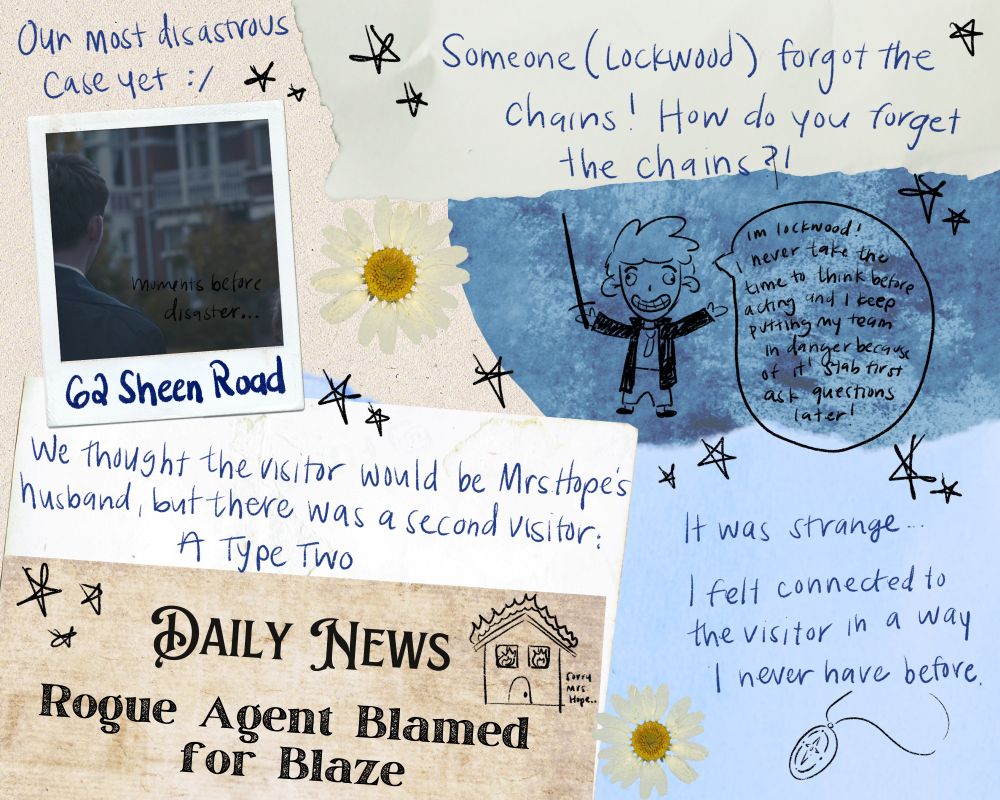 Our most disastrous
case yet :/
Someone (Lockwood) forgot the
chains! How do you forget
the chains?!
moments before
disaster...
62 Sheen Road
Im lockwood!
I never take the
time to think before
acting and I keep
putting my team
in danger because
of it! Stab first
ask questions
later!
We thought the visitor would be Mrs. Hope's
husband, but there was a second visitor:
A Type Two
Daily News
sorry
Mrs.
Hope..
Rogue Agent Blamed
for Blaze
It was strange...
I felt connected to
the visitor in a way
I never have before.